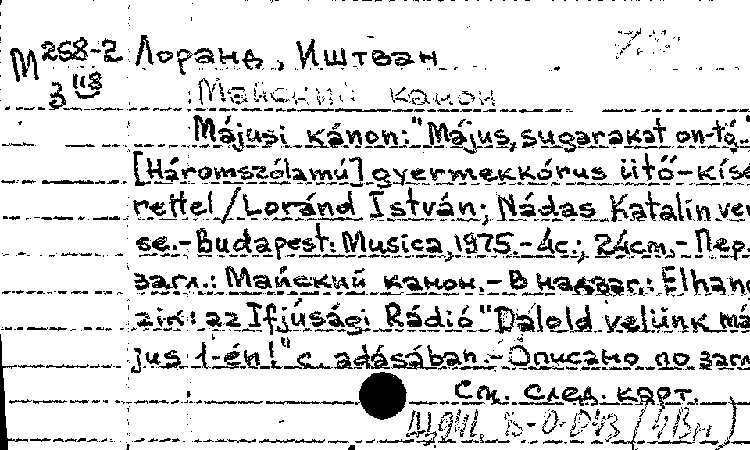 М 268-2 Лоранд, Иштван
3 118
Майский канон
Májusi kánon: "Május, sugarakat on-tó..."
[Háromszólamú] gyermekkórus ütő-kísé
rettel / Loránd István; Nádas Katalin ver
se.- Budapest: Musica, 1975.- 4c.; 24cm.- Пер.
загл.: Майский канон.- В надзаг.: Elhang
zik: az Ifjúsági Rádió "Dalold velünk má
jus 1-én!" c. adásában.- Описано по загл
См. след. карт.